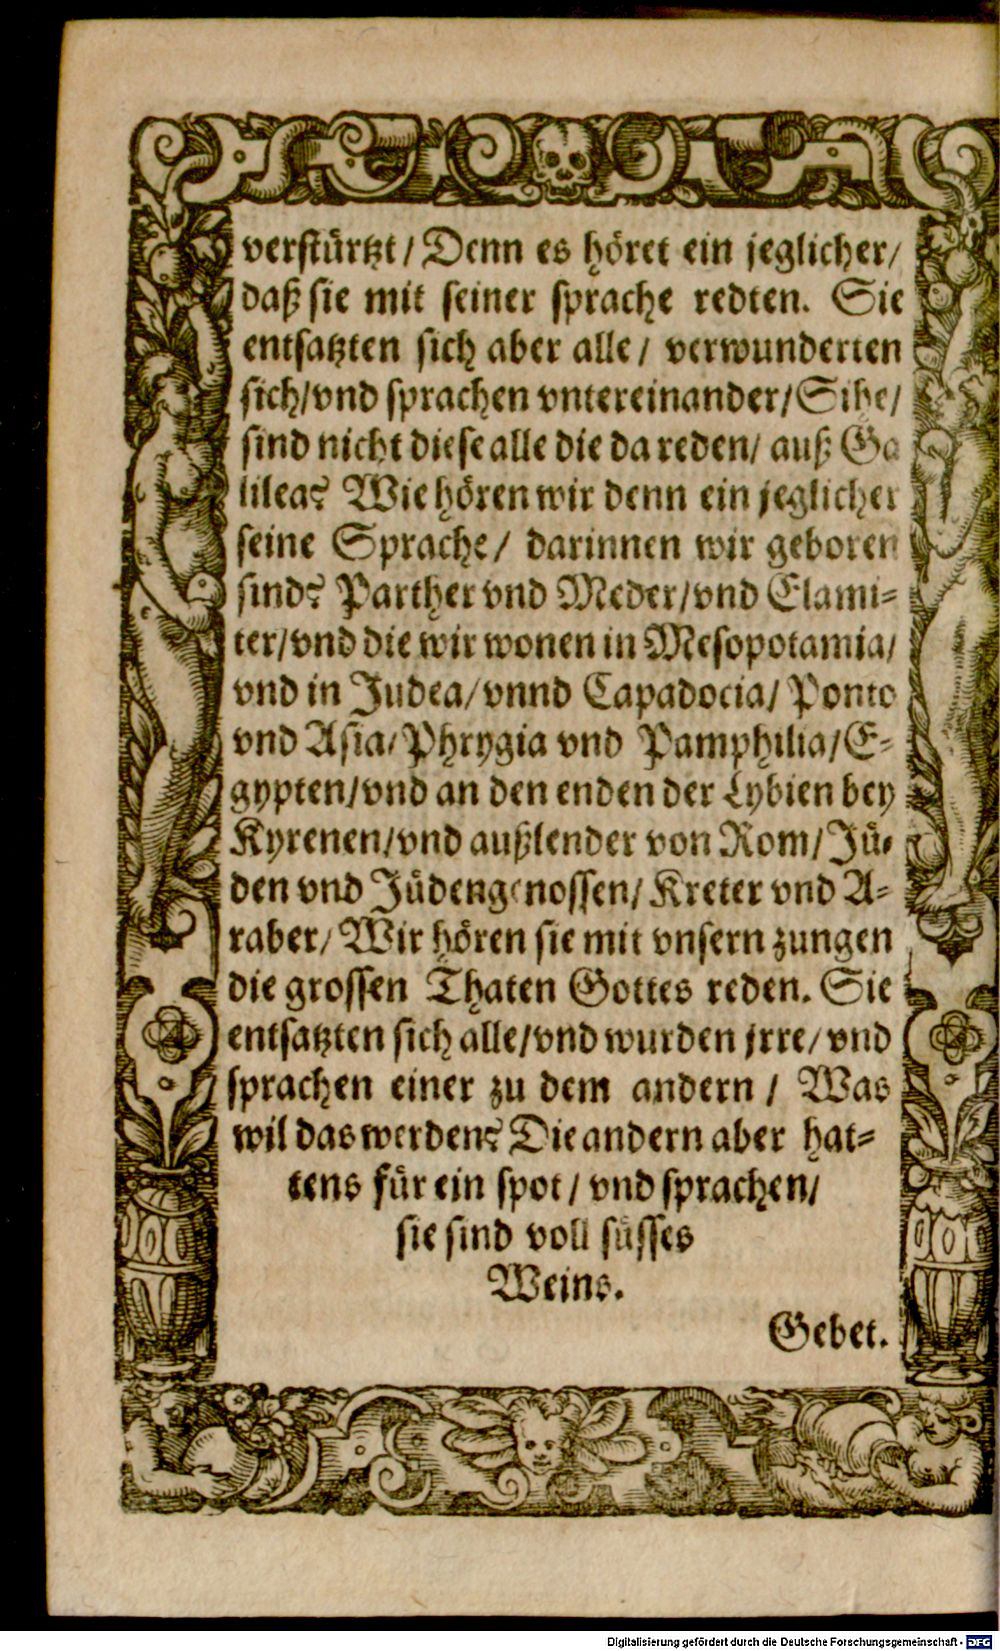 verstürtzt / Denn es höret ein jeglicher /
daß sie mit seiner sprache redten. Sie
entsatzten sich aber alle / verwunderten
sich / vnd sprachen vntereinander / Sihe /
sind nicht diese alle die da reden / auß Ga
lilea? Wie hören wir denn ein jeglicher
seine Sprache / darinnen wir geboren
sind? Parther vnd Meder / vnd Elami-
ter / vnd die wir wonen in Mesopotamia /
vnd in Judea / vnnd Capadocia / Ponto
vnd Asia / Phrygia vnd Pamphilia / E-
gypten / vnd an den enden der Lybien bey
Kyrenen / vnd außlender von Rom / Jü-
den vnd Jüdengenossen / Kreter vnd A-
raber / Wir hören sie mit vnsern zungen
die grossen Thaten Gottes reden. Sie
entsatzten sich alle / vnd wurden jrre / vnd
sprachen einer zu dem andern / Was
wil das werden? Die andern aber hat-
tens für ein spot / vnd sprachen /
sie sind voll süsses
Weins.
Gebet.
Digitalisierung gefördert durch die Deutsche Forschungsgemeinschaft - DFG